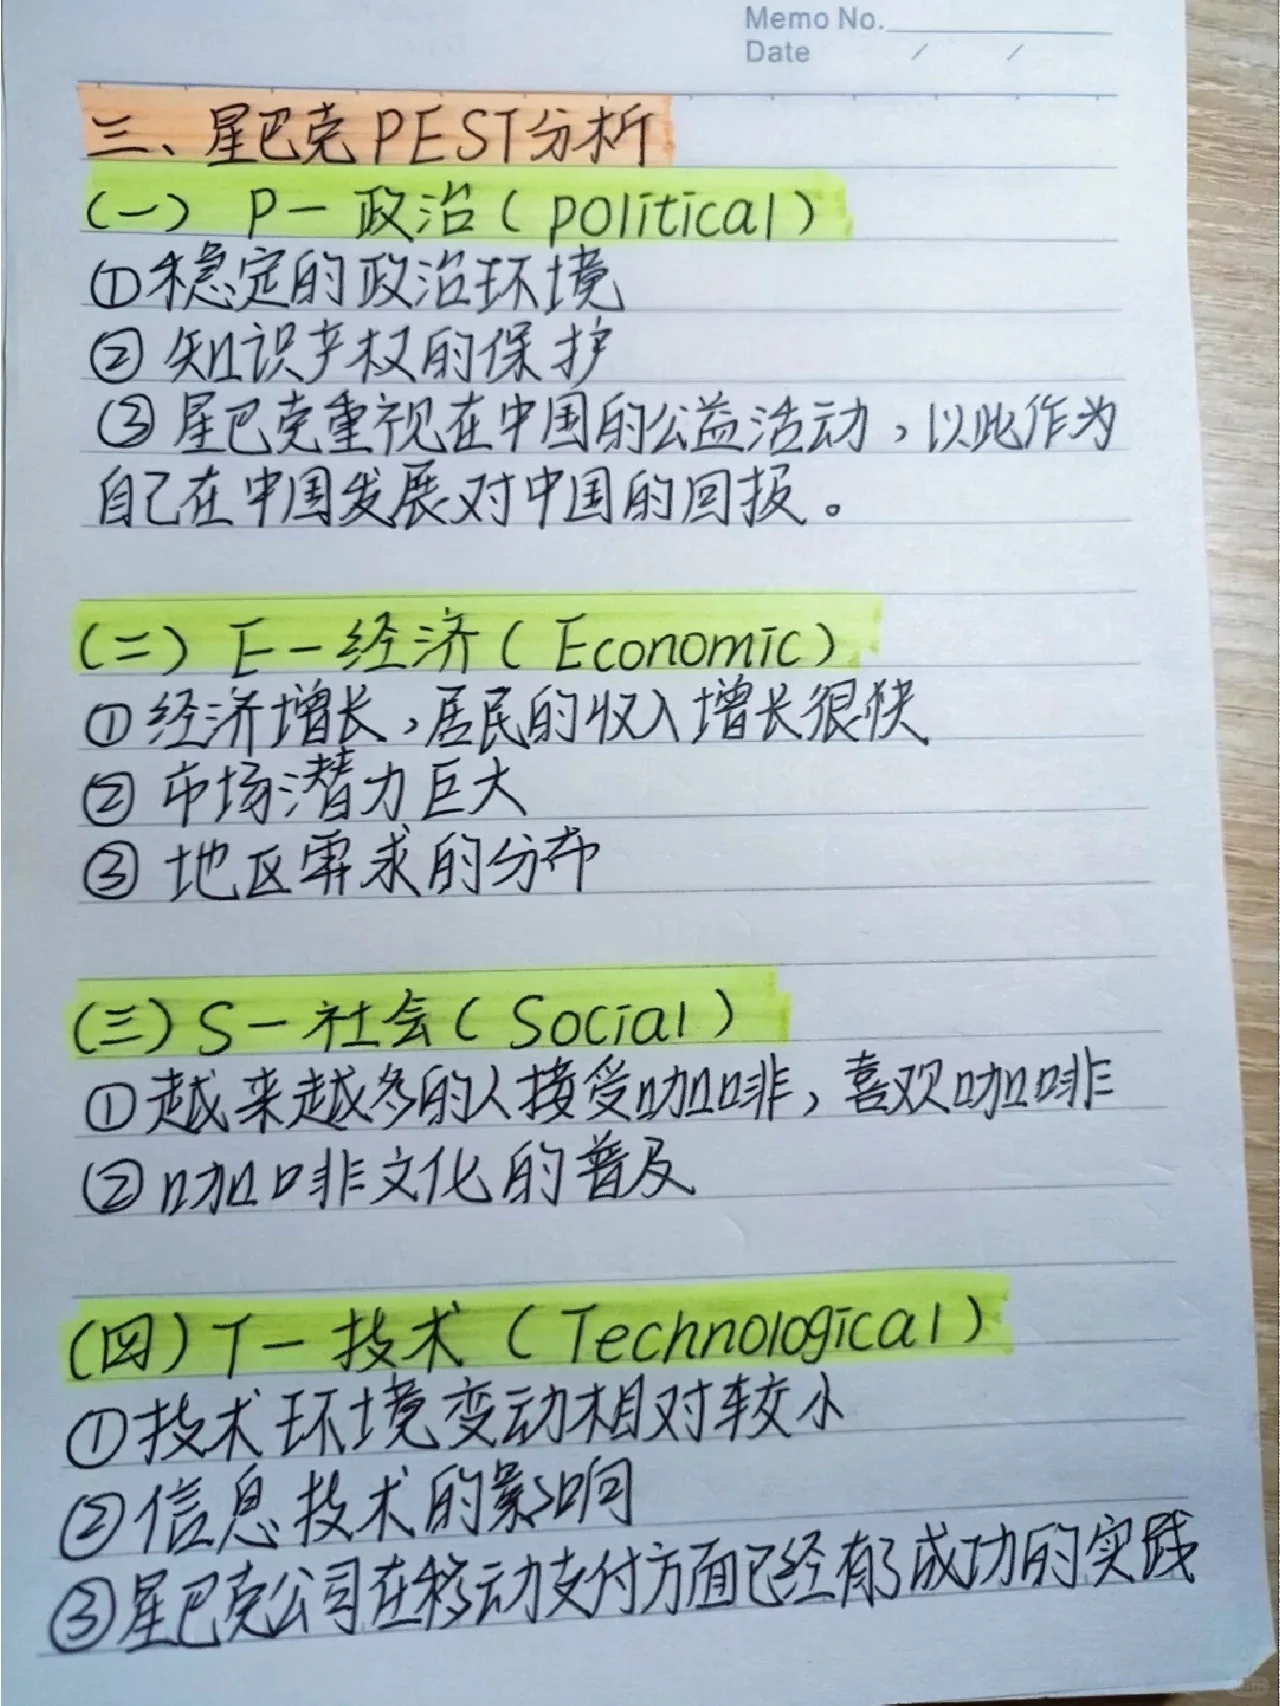 Memo No.
Date / /
三、星巴克PEST分析
(一) P一政治(political)
①稳定的政治环境
②知识产权的保护
③星巴克重视在中国的公益活动,以此作为
自己在中国发展对中国的回报。
(二) E一经济(Economic)
①经济增长,居民的收入增长很快
②市场潜力巨大
③地区需求的分布
(三)S一社会(Social)
①越来越多的人接受咖啡,喜欢咖啡
②咖啡文化的普及
(四)T一技术(Technological)
①技术环境变动相对较小
②信息技术的影响
③星巴克公司在移动支付方面已经有了成功的实践